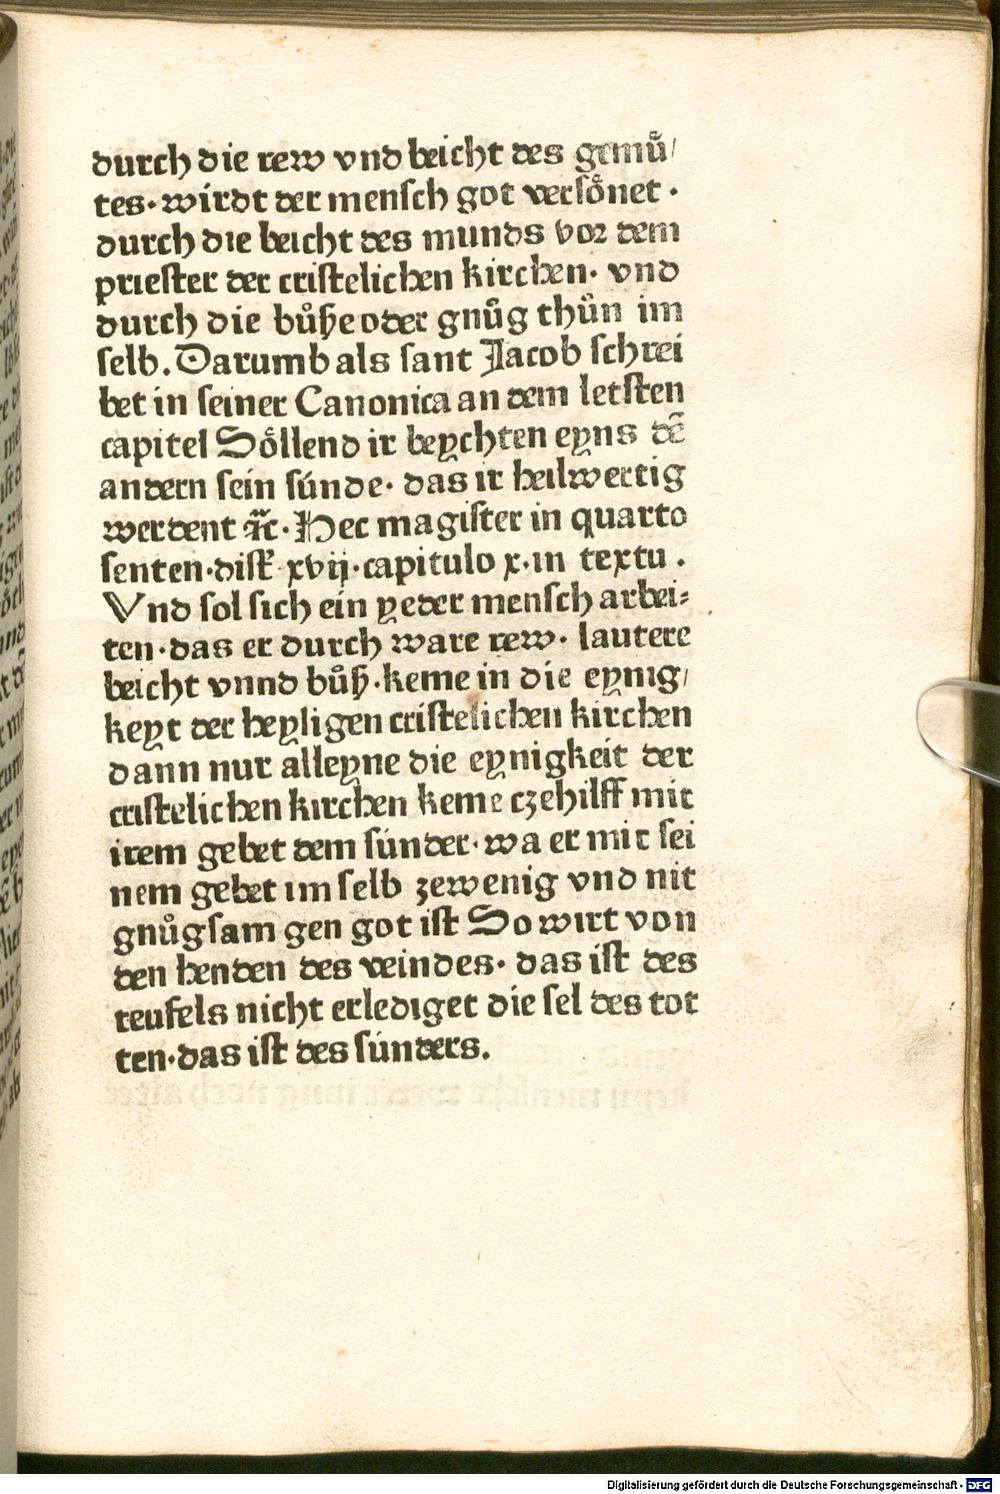 durch die rew vnd beicht des gemuͤ/
tes·wirdt der mensch got versoͤnet·
durch die beicht des munds vor dem
priester der cristelichen kirchen· vnd
durch die buͦß oder gnuͦg thuͦn im
selb. Darumb als sant Jacob schrei
bet in seiner Canonica an dem letsten
capitel Soͤllend ir beychten eyns dē
andern sein súnde· das ir heilwertig
werdent ⁊c̄·Hec magister in quarto
senten·dist xvij·capitulo x·in textu.
Vnd sol sich ein yeder mensch arbei⸗
ten·das er durch ware rew· lautere
beicht vnnd buͦß·keme in die eynig/
keyt der heyligen cristelichen kirchen
dann nur alleyne die eynigkeit der
cristelichen kirchen keme czehilff mit
irem gebet dem súnder·wa er mit sei
nem gebet im selb zewenig vnd nit
gnuͦgsam gen got ist So wirt von
den henden des veindes· das ist des
teufels nicht erlediget die sel des tot
ten·das ist des súnders.
Digitalisierung gefördert durch die Deutsche Forschungsgemeinschaft - DFG